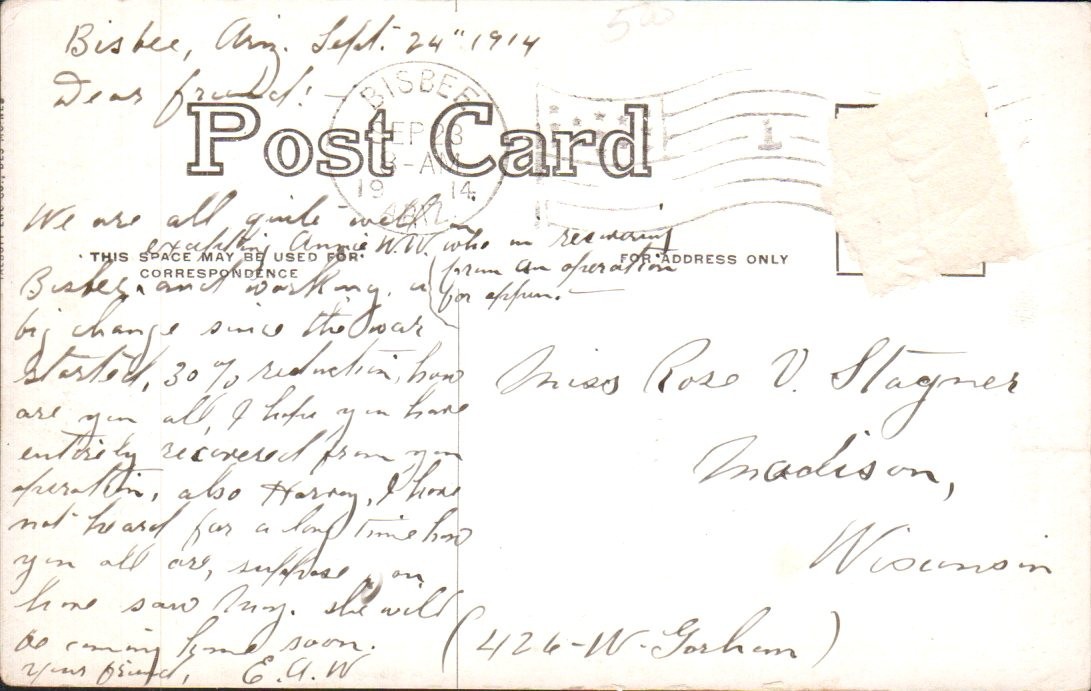 Bisbee, Ariz. Sept. 24" 1914
Dear friend! —
BISBEE
SEP 23
8-AM
19 14
ARIZ.
1
Post Card
THIS SPACE MAY BE USED FOR
CORRESPONDENCE
FOR ADDRESS ONLY
We are all quite well in
excepting Annie W.W. who is recovering
from an operation
for appen. —
Bisbee, and working, a
big change since the war
started, 30% reduction, how
are you all, I hope you have
entirely recovered from your
operation, also Harvey, I have
not heard for a long time how
you all are, suppose you
have saw May. she will
be coming home soon.
Your friend, E.A.W
Miss Rose V. Stagner
Madison,
Wisconsin
(426-W-Gorham)